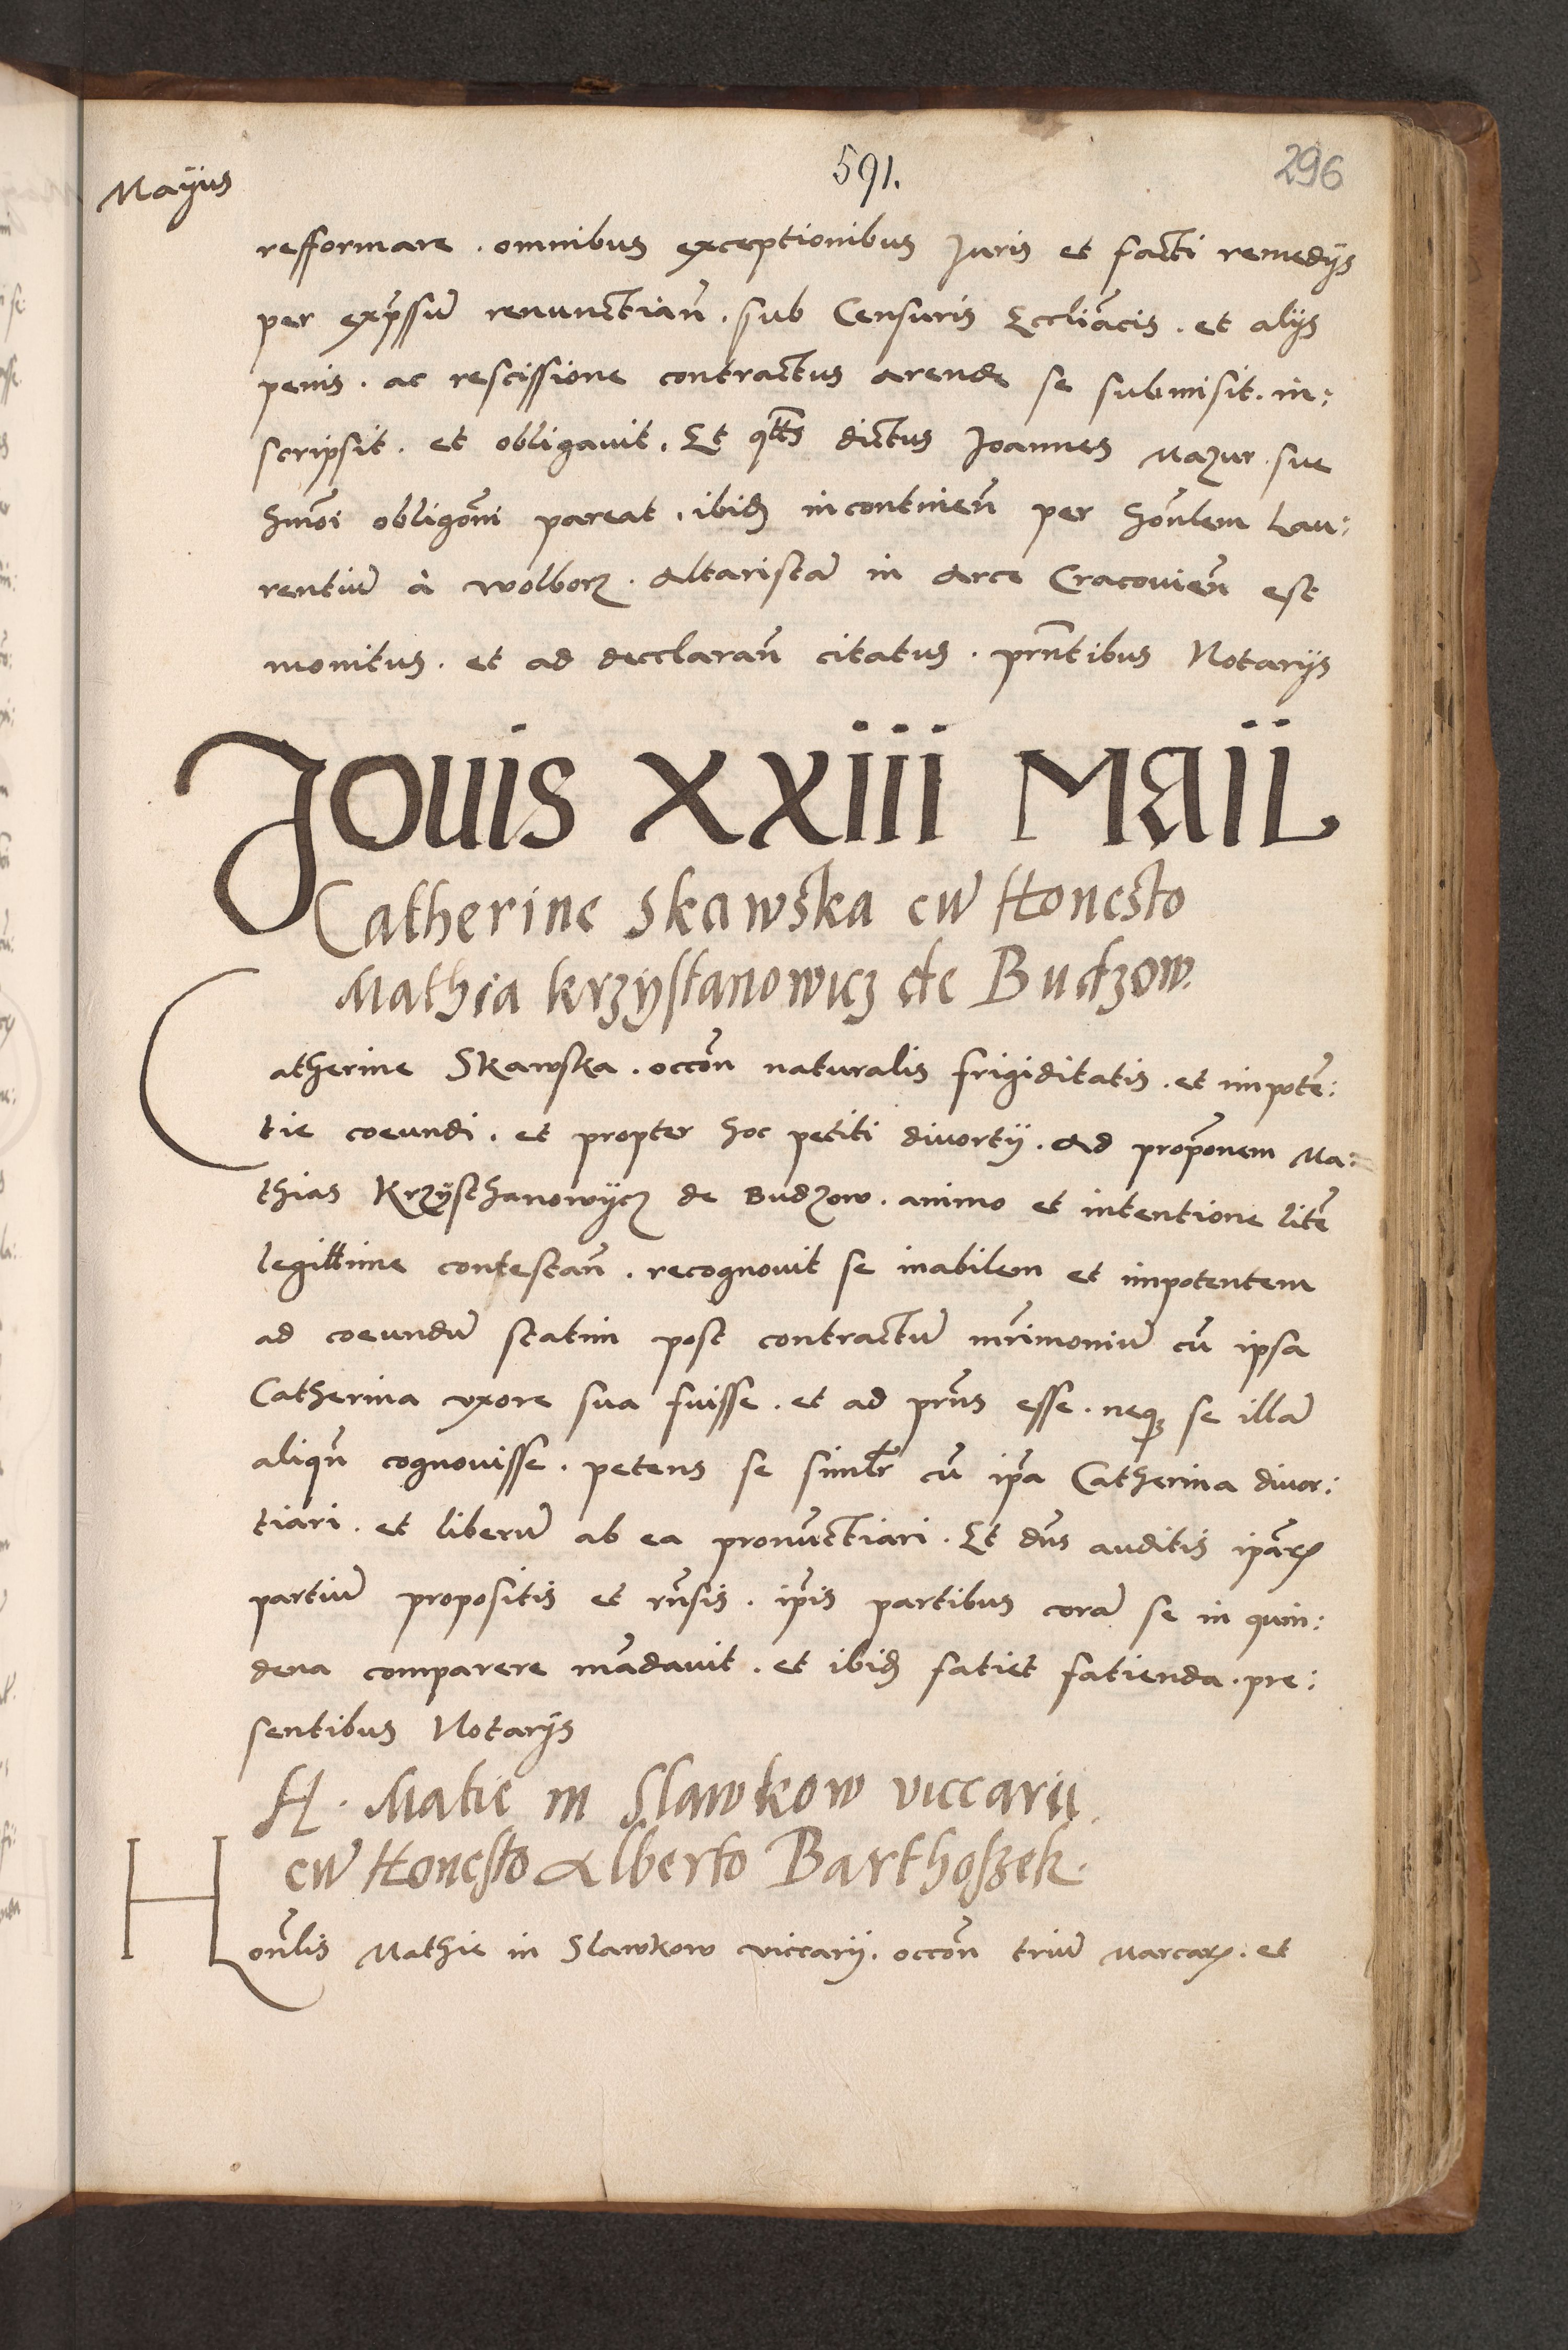 Mayus
591.
296
refformare . omnibus exceptionibus Juris et facti remedijs
per exp̃ssum̃ renunctian̄ . sub Censuris Eccliãcis . et alijs
penis . ac rescissione contractus arende se submisit . in:
scripsit . et obligauit . Et qtt̄s dictus Joannes Mazur . sue
hmõi obligõni pareat . ibid̃ incontinen̄ per hõnlem Lau:
rentiũ à Wolborz . Altaristã in Arce Cracouien̄ est
monitus . et ad decclaran̄ citatus . prñtibus Notarijs
Jouis XXIII Maii
Catherine Skawska cũ Honesto
Mathia krzystanowicz de Budzow.
Catherine Skawska . occõn naturalis frigiditatis . et impotẽ:
tie coeundi . et propter hoc petiti diuortij . Ad prop̃onem Ma:
thias Krzysthanowycz de Budzow . animo et intentione litẽ
legittime contestan̄ . recognouit se inabilem et impotentem
ad coeundũ statim post contractũ mr̃imoniũ cũ ipsa
Catherina vxore sua fuisse . et ad prñs esse . neq₃ se illã
aliqñ cognouisse . petens se simlr̃ cũ ip̃a Catherina diuor:
tiari . et liberũ ab ea pronũctiari . Et dñs auditis ip̃aꝝ
partiũ propositis et rñsis . ip̃is partibus corã se in quin:
dena comparere mãdauit . et ibid̃ fatiet fatienda . pre:
sentibus Notarijs
H. Matie in Slawkow viccarii
cũ Honesto Alberto Barthoszek.
Hon̄lis Mathie in Slawkow viccarij . occõn triũ Marcaꝝ . et